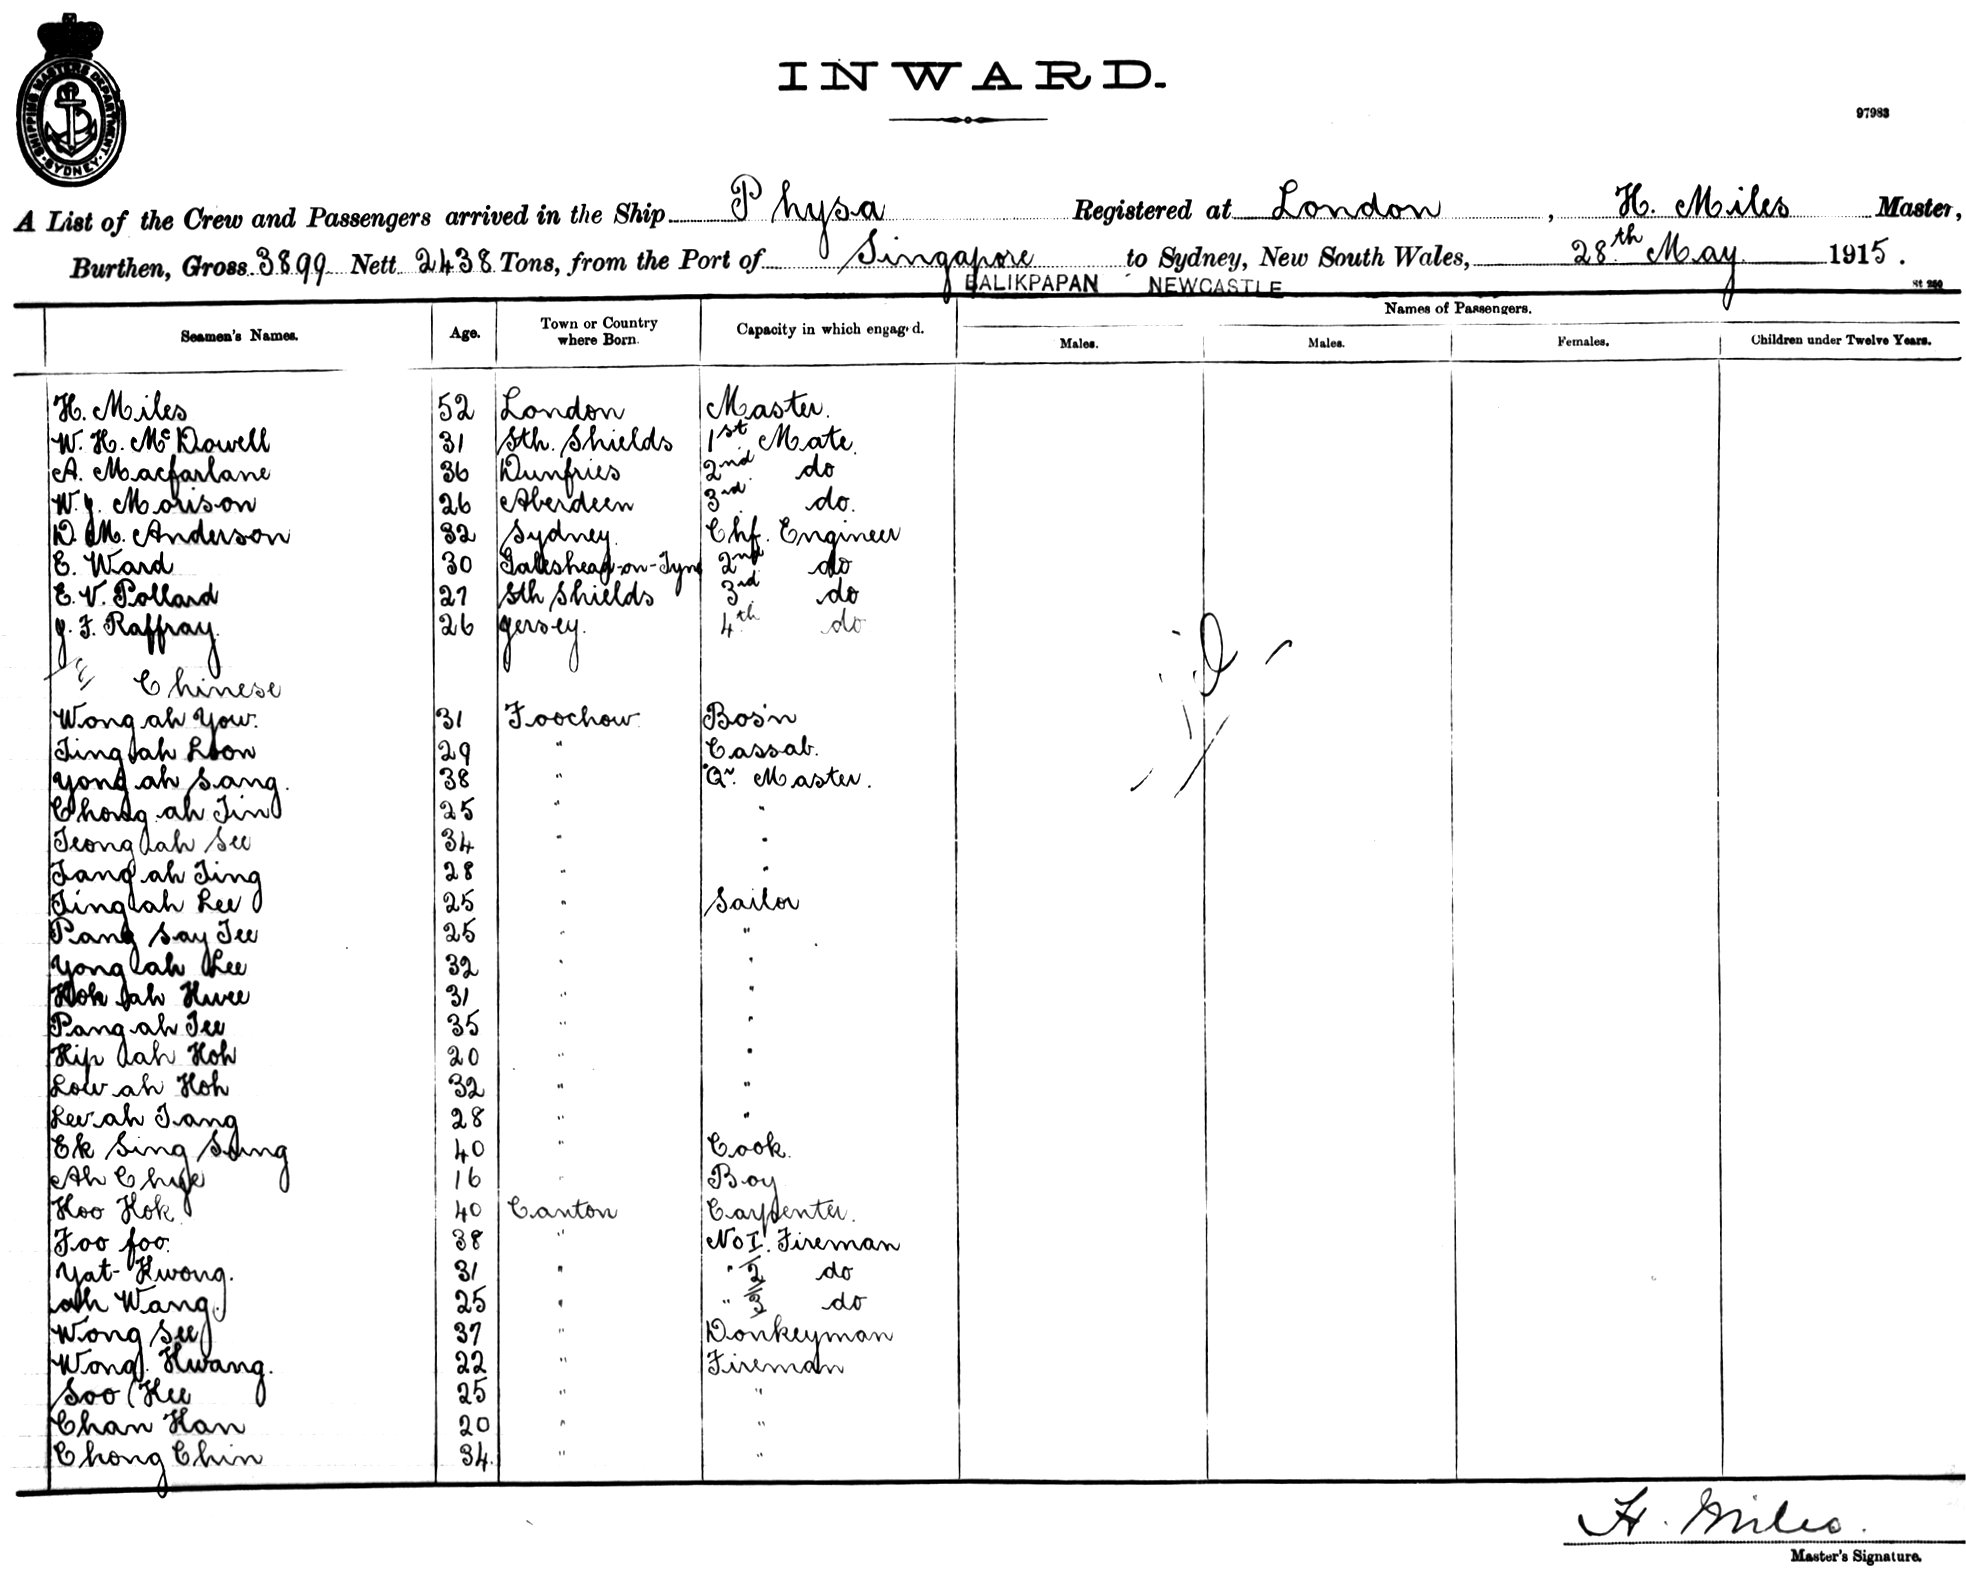 SHIPPING MASTERS DEPARTMENT
SYDNEY
INWARD.
97983
A List of the Crew and Passengers arrived in the Ship Physa Registered at London, H. Miles Master,
Burthen, Gross 3899 Nett 2438 Tons, from the Port of Singapore to Sydney, New South Wales, 28th May 1915.
BALIKPAPAN NEWCASTLE
St 240
Seamen's Names. Age. Town or Country where Born. Capacity in which engag'd. Names of Passengers.
Males. Males. Females. Children under Twelve Years.
H. Miles 52 London Master.
W. H. McDowell 31 Sth. Shields 1st Mate
A. Macfarlane 36 Dunfries 2nd do
W. J. Morison 26 Aberdeen 3rd do.
D. M. Anderson 32 Sydney Chf. Engineer
E. Ward 30 Gateshead-on-Tyne 2nd do
E. V. Pollard 27 Sth Shields 3rd do
J. F. Raffray 26 Jersey. 4th do
Chinese
Wong ah You. 31 Foochow Bos'n
Ting ah Loon 29 " Cassab.
Yong ah Sang. 38 " Qr. Master.
Chong ah Tin 25 " "
Teong ah See 34 " "
Tang ah Ting 28 " "
Ting ah Lee 25 " Sailor
Pang Say Tee 25 " "
Yong ah Lee 32 " "
Hok ah Hwee 31 " "
Pang ah Tee 35 " "
Hip ah Hoh 20 " "
Low ah Hoh 32 " "
Lee ah Tang 28 " "
Ek Sing Sung 40 " Cook.
Ah Chye 16 " Boy
Hoo Hok 40 Canton Carpenter.
Foo foo. 38 " No 1. Fireman
Yat-Kwong. 31 " " 2 do
ah Wang. 25 " " 3 do
Wong See 37 " Donkeyman
Wong. Hwang. 22 " Fireman
Soo Hee 25 " "
Chan Han 20 " "
Chong Chin 34. " "
H. Miles.
Master's Signature.